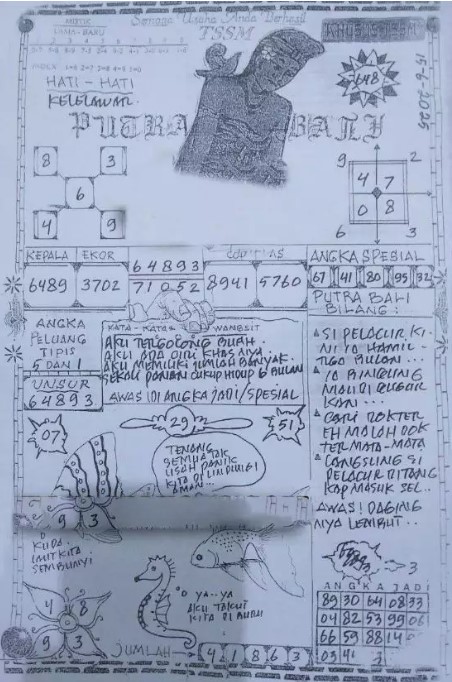 MISTIC
Semoga Usaha Anda Berhasil
TSSM
648
HATI - HATI
KELELAWAR
PUTRA BALI
8 3
6
4 9
9 2
4 7
0 8
6 3
KEPALA EKOR
6489 3702
64893
71052
8941 5760
ANGKA SPESIAL
67 41 80 95 32
PUTRA BALI
BILANG :
ANGKA
PELUANG
TIPIS
5 DAN 1
UNSUR
64893
KATA - KATA WANGSIT
AKU TERGOLONG BUAH.
AKU ADA CIRI KHAS NYA
AKU MEMILIKI JUMLAH BANYAK.
SEKALI PANEN CUKUP HIDUP 6 BULAN
AWAS DI ANGKA JADI/SPESIAL
SI PELACUR KI-
NI YA HAMIL
TIGO BULAN...
YO BINGUNG
MAU DI GUGUR
KAN...
CARI DOKTER
EH MALAH DOK
TER MATA-MATA
LANGSUNG SI
PELACUR DI TANG
KAP MASUK SEL..
AWAS! DAGING
NYA LEMBUT..
07
29
51
TENANG
SEMUA TAK
USAH PANIK
KITA DI LINDUNGI
AMAN...
9 3
KUDA
IMIT KITA
SEMBUNYI
YA..YA
AKU TAKUT
4 8
9 3
JUMLAH
4 1 8 6 3
3
ANGKA JADI
89 30 64 08 33
04 82 53 99 06
66 59 88 14
03 41